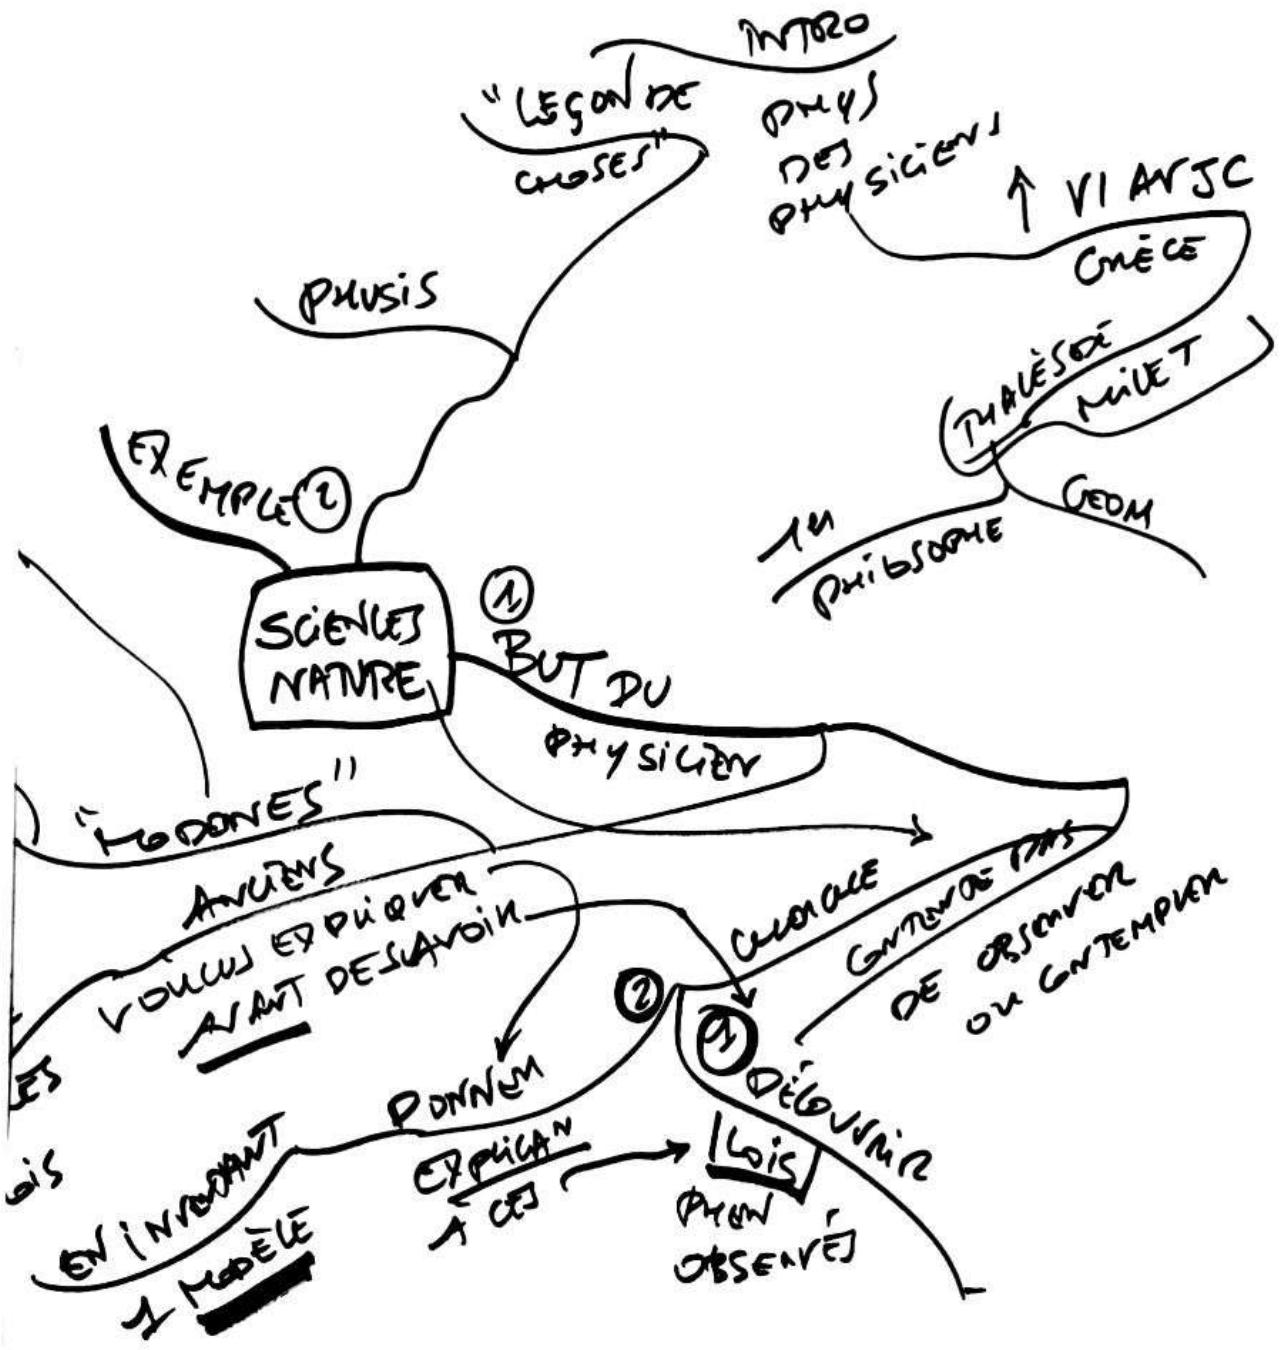 INTRO
"LEÇON DE
CHOSES"
PHYS
DES
PHYSICIENS
↑ VI AV JC
GRÈCE
PHUSIS
THALÈS DE
MILET
EXEMPLE ②
GEOM
1er
PHILOSOPHE
SCIENCES
NATURE
①
BUT DU
PHYSICIEN
"MODERNES"
ANCIENS
VOULUS EXPLIQUER
AVANT DE SAVOIR
CHERCHE
CONTENTE PAS
DE OBSERVER
OU CONTEMPLER
②
①
DÉCOUVRIR
LOIS
PHEN
OBSERVÉS
DONNER
EXPLICAN
A CES
EN INVENTANT
1 MODÈLE
ES
OIS